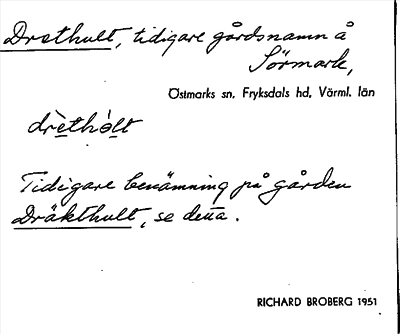 Drethult, tidigare gårdsnamn å
Sörmark,
Östmarks sn, Fryksdals hd, Värml. län
drèthól̀t
Tidigare benämning på gården
Dräkthult, se detta.
RICHARD BROBERG 1951